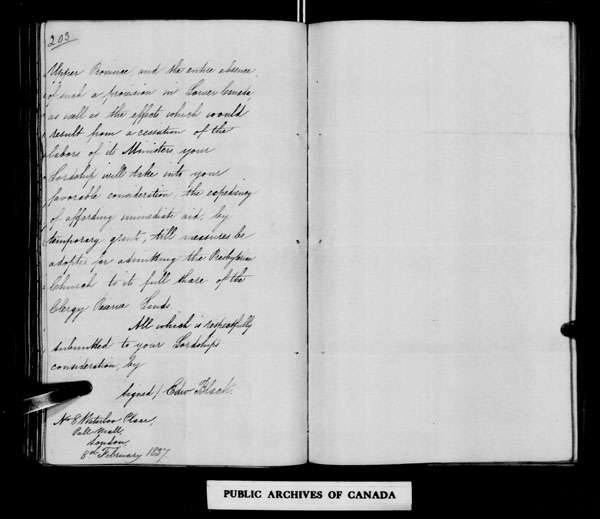 203
Upper Province and the entire absence
of such a provision in Lower Canada
as well as the effects which would
result from a cessation of the
labors of its Ministers your
Lordship will take into your
favorable consideration, the expediency
of affording immediate aid, by
temporary grant, till measures be
adopted for admitting the Presbyterian
Church to its full share of the
Clergy Reserve Lands.
All which is respectfully
submitted to your Lordships
consideration, by
Signed / Edw Black.
Waterloo Place,
Pall Mall
London,
8th February 1837
PUBLIC ARCHIVES OF CANADA